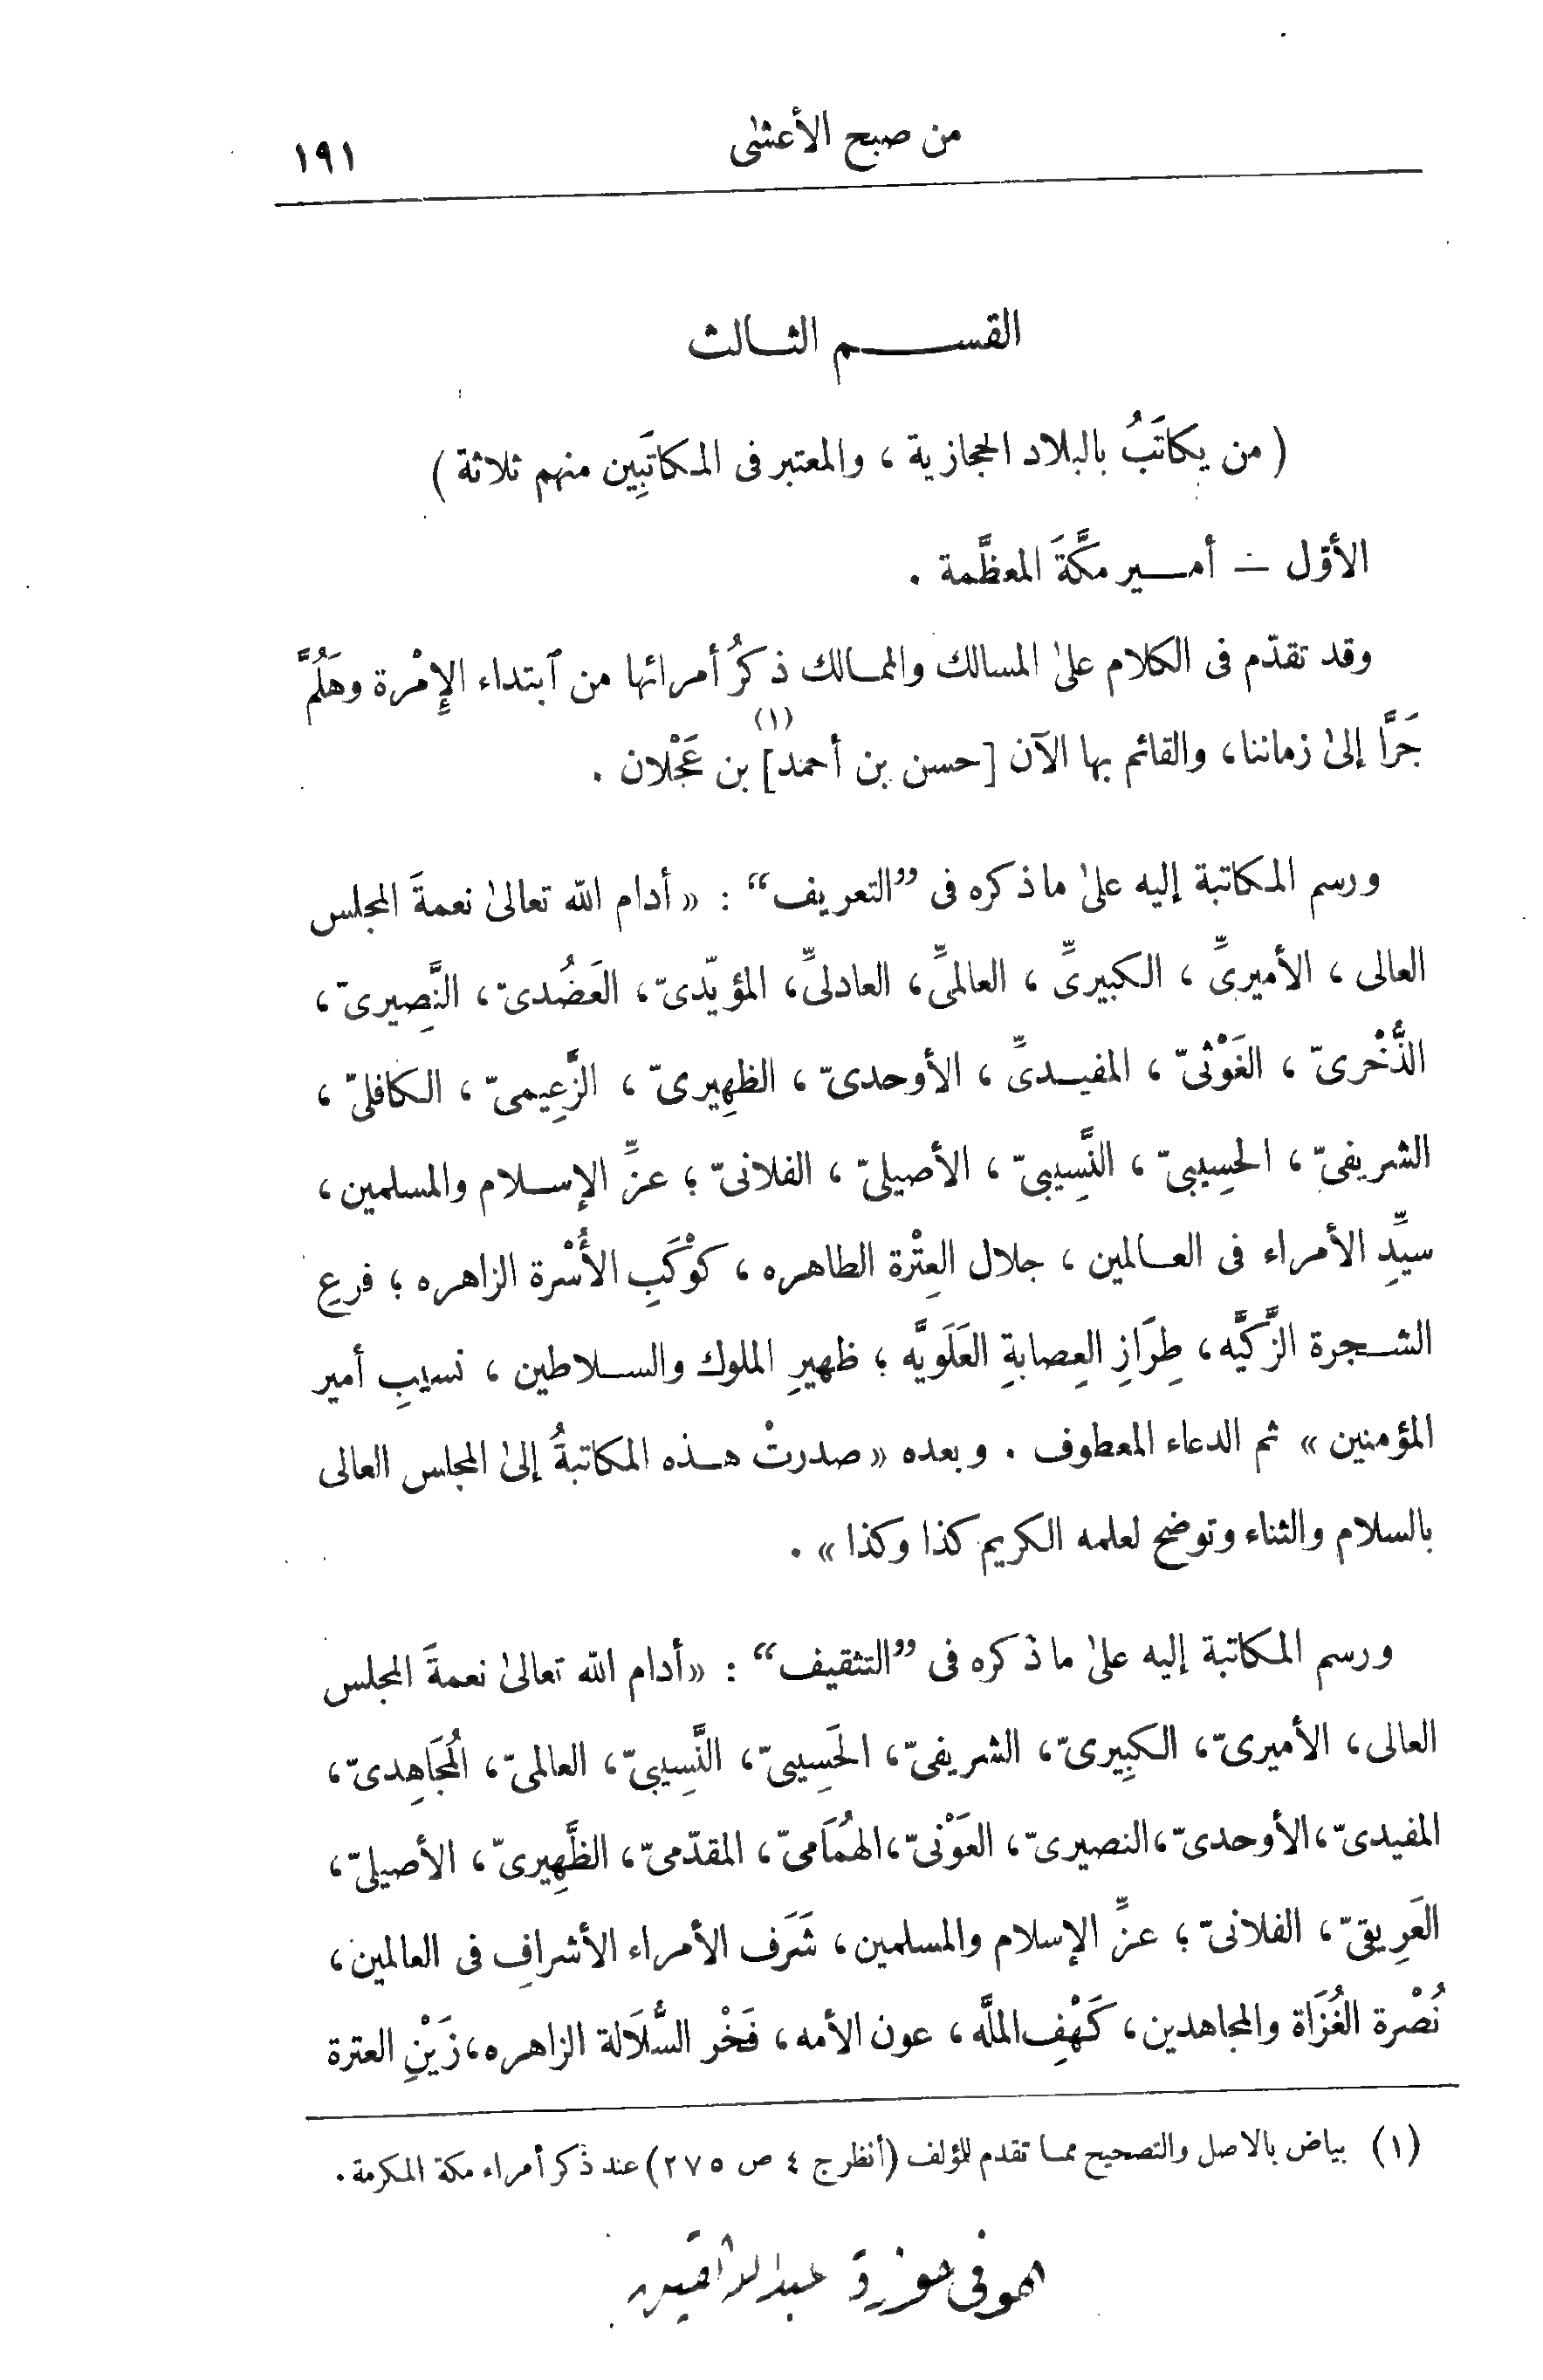 من صبح الأعشى
١٩١
القســـم الثــالث
( من يكاتَبُ بالبلاد الحجازية ، والمعتبر فى المكاتَبِين منهم ثلاثة )
الأوّل — أمــير مكَّةَ المعظَّمة .
وقد تقدّم فى الكلام علىٰ المسالك والممالك ذكرُ أمرائها من آبتداء الإِمْرة وهَلُمَّ
جَرًّا إلىٰ زماننا، والقائم بها الآن [حسن بن أحمد] (١) بن عَجْلان .
ورسم المكاتبة إليه علىٰ ماذكره فى ”التعريف“ : « أدام الله تعالىٰ نعمةَ المجلس
العالى ، الأميرىِّ ، الكبيرىِّ ، العالمىِّ، العادلىِّ، المؤيّدىّ، العَضُدىّ، النَّصِيرىّ،
الذُّخْرىّ ، الغَوْثىّ ، المفيــدىِّ ، الأوحدىّ ، الظهِيرىّ ، الزَّعِيمىّ ، الكافلىّ ،
الشريفىّ ، الحسِيبىّ ، النَّسِيبىّ ، الأصيلىّ ، الفلانىّ ؛ عزِّ الإســلام والمسلمين،
سيِّدِ الأمراء فى العــالمين ، جلال العِتْرة الطاهره ، كوْكَبِ الأُسْرة الزاهره ؛ فرعِ
الشــجرة الزَّكيَّه، طِرَازِ العِصابةِ العَلَويَّه ؛ ظهيرِ الملوك والســلاطين ، نسيبِ أمير
المؤمنين » ثم الدعاء المعطوف . وبعده « صدرتْ هــذه المكاتبةُ إلىٰ المجلس العالى
بالسلام والثناء وتوضح لعلمه الكريم كذا وكذا » .
ورسم المكاتبة إليه علىٰ ماذكره فى ”التثقيف“ : «أدام الله تعالىٰ نعمةَ المجلس
العالى، الأميرىّ، الكبِيرىّ، الشريفىّ، الحَسِيبىّ، النَّسِيبىّ، العالمىّ، المُجَاهِدىّ،
المفيدىّ،الأوحدىّ،النصيرىّ، العَوْنىّ،الهُمَامىّ، المقدّمىّ، الظَّهِيرىّ، الأصيلىّ،
العَرِيقىّ، الفلانىّ ؛ عزِّ الإسلام والمسلمين، شَرَف الأمراء الأشرافِ فى العالمين،
نُصْرة الغُزَاة والمجاهدين، كَهْفِ الملَّه، عون الأمه، فَخْر السُّلَالة الزاهره، زَيْنِ العترة
(١) بياض بالاصل والتصحيح مما تقدم للمؤلف (أنظر ج ٤ ص ٢٧٥) عند ذكر أمراء مكة المكرمة .